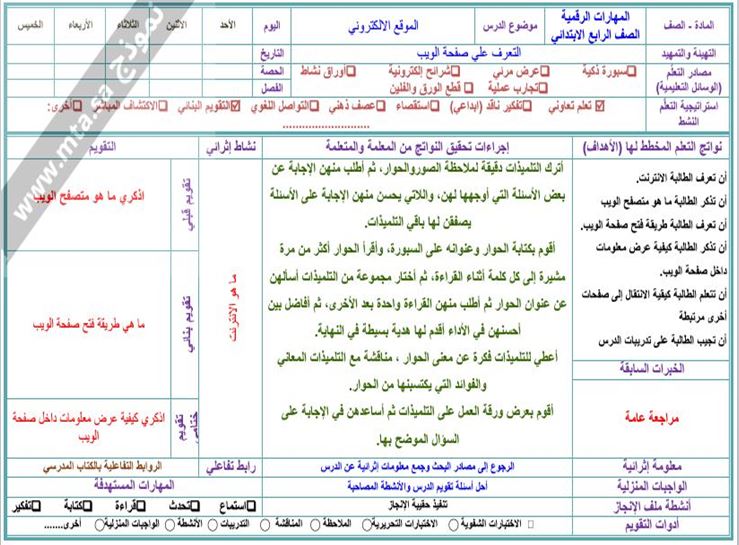 المادة - الصف
المهارات الرقمية
الصف الرابع الابتدائي
موضوع الدرس
الموقع الالكتروني
اليوم
الأحد
الاثنين
الثلاثاء
الأربعاء
الخميس
التهيئة والتمهيد
التعرف علي صفحة الويب
التاريخ
مصادر التعلم
(الوسائل التعليمية)
سبورة ذكية
عرض مرئي
شرائح إلكترونية
أوراق نشاط
تجارب عملية
قطع الورق والفلين
الحصة
الفصل
استراتيجية التعلم
النشط
تعلم تعاوني
تفكير ناقد (ابداعي)
استقصاء
عصف ذهني
التواصل اللغوي
التقويم البنائي
الاكتشاف المباشر
أخرى:
..........................
نواتج التعلم المخطط لها (الأهداف)
إجراءات تحقيق النواتج من المعلمة والمتعلمة
نشاط إثرائي
التقويم
أن تعرف الطالبة الانترنت.
أن تذكر الطالبة ما هو متصفح الويب
أن تعرف الطالبة طريقة فتح صفحة الويب.
أن تذكر الطالبة كيفية عرض معلومات
داخل صفحة الويب.
أن تتعلم الطالبة كيفية الانتقال إلى صفحات
أخرى مرتبطة
أن تجيب الطالبة على تدريبات الدرس
الخبرات السابقة
مراجعة عامة
أترك التلميذات دقيقة لملاحظة الصوروالحوار، ثم أطلب منهن الإجابة عن
بعض الأسئلة التي أوجهها لهن، واللاتي يحسن منهن الإجابة على الأسئلة
يصفقن لها باقي التلميذات.
أقوم بكتابة الحوار وعنوانه على السبورة، وأقرأ الحوار أكثر من مرة
مشيرة إلى كل كلمة أثناء القراءة، ثم أختار مجموعة من التلميذات أسألهن
عن عنوان الحوار ثم أطلب منهن القراءة واحدة بعد الأخرى، ثم أفاضل بين
أحسنهن في الأداء أقدم لها هدية بسيطة في النهاية.
أعطي للتلميذات فكرة عن معنى الحوار ، مناقشة مع التلميذات المعاني
والفوائد التي يكتسبنها من الحوار.
أقوم بعرض ورقة العمل على التلميذات ثم أساعدهن في الإجابة على
السؤال الموضح بها.
ما هو الانترنت
تقويم قبلي
اذكري ما هو متصفح الويب
تقويم بنائي
ما هي طريقة فتح صفحة الويب
تقويم
ختامي
اذكري كيفية عرض معلومات داخل صفحة
الويب
معلومة إثرائية
الرجوع إلى مصادر البحث وجمع معلومات إثرائية عن الدرس
رابط تفاعلي
الروابط التفاعلية بالكتاب المدرسي
الواجبات المنزلية
أحل أسئلة تقويم الدرس والأنشطة المصاحبة
المهارات المستهدفة
أنشطة ملف الإنجاز
تنفيذ حقيبة الإنجاز
استماع
تحدث
قراءة
كتابة
تفكير
أدوات التقويم
الاختبارات الشفوية
الاختبارات التحريرية
الملاحظة
المناقشة
التدريبات
الأنشطة
الواجبات المنزلية
أخرى.......
نموذج www.mta.sa